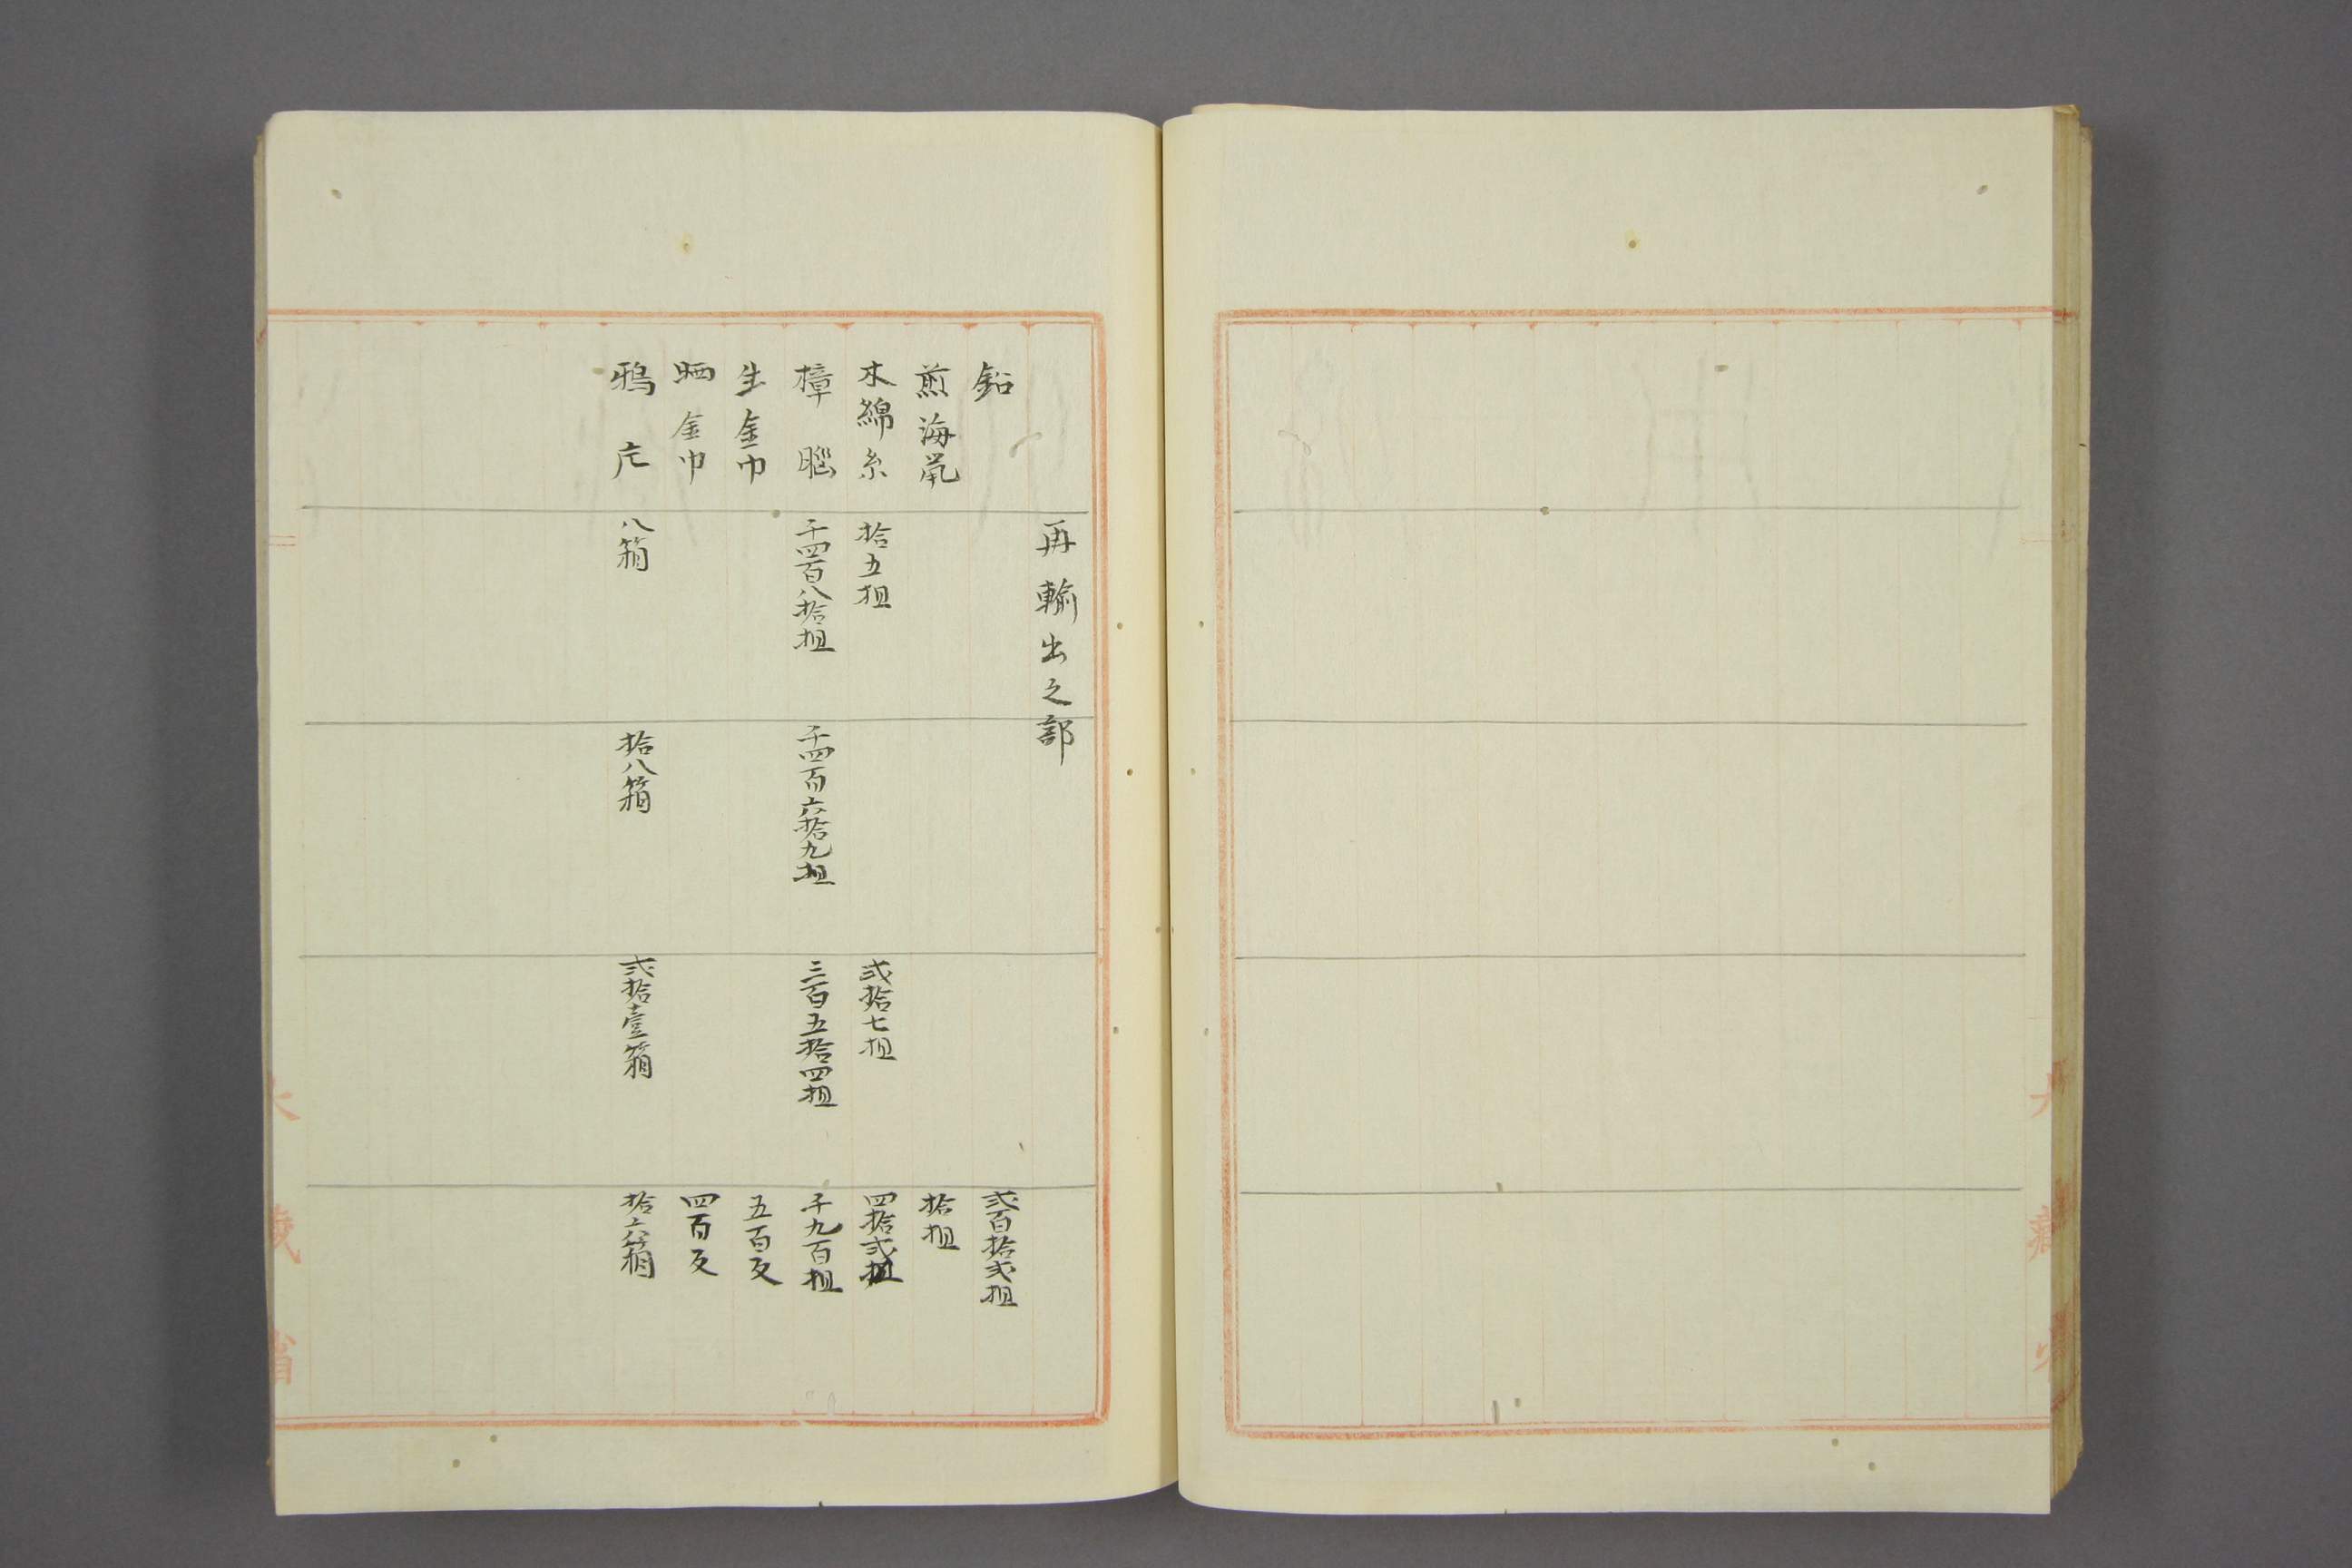 再輸出之部
鉛 弐百拾弐担
煎海鼠 拾担
木綿糸 拾五担 弐拾七担 四拾弐担
樟脳 千四百八拾担 千四百六拾九担 三百五拾四担 千九百担
生金巾 五百反
晒金巾 四百反
鴉片 八箱 拾八箱 弐拾壹箱 拾六箱
大藏省